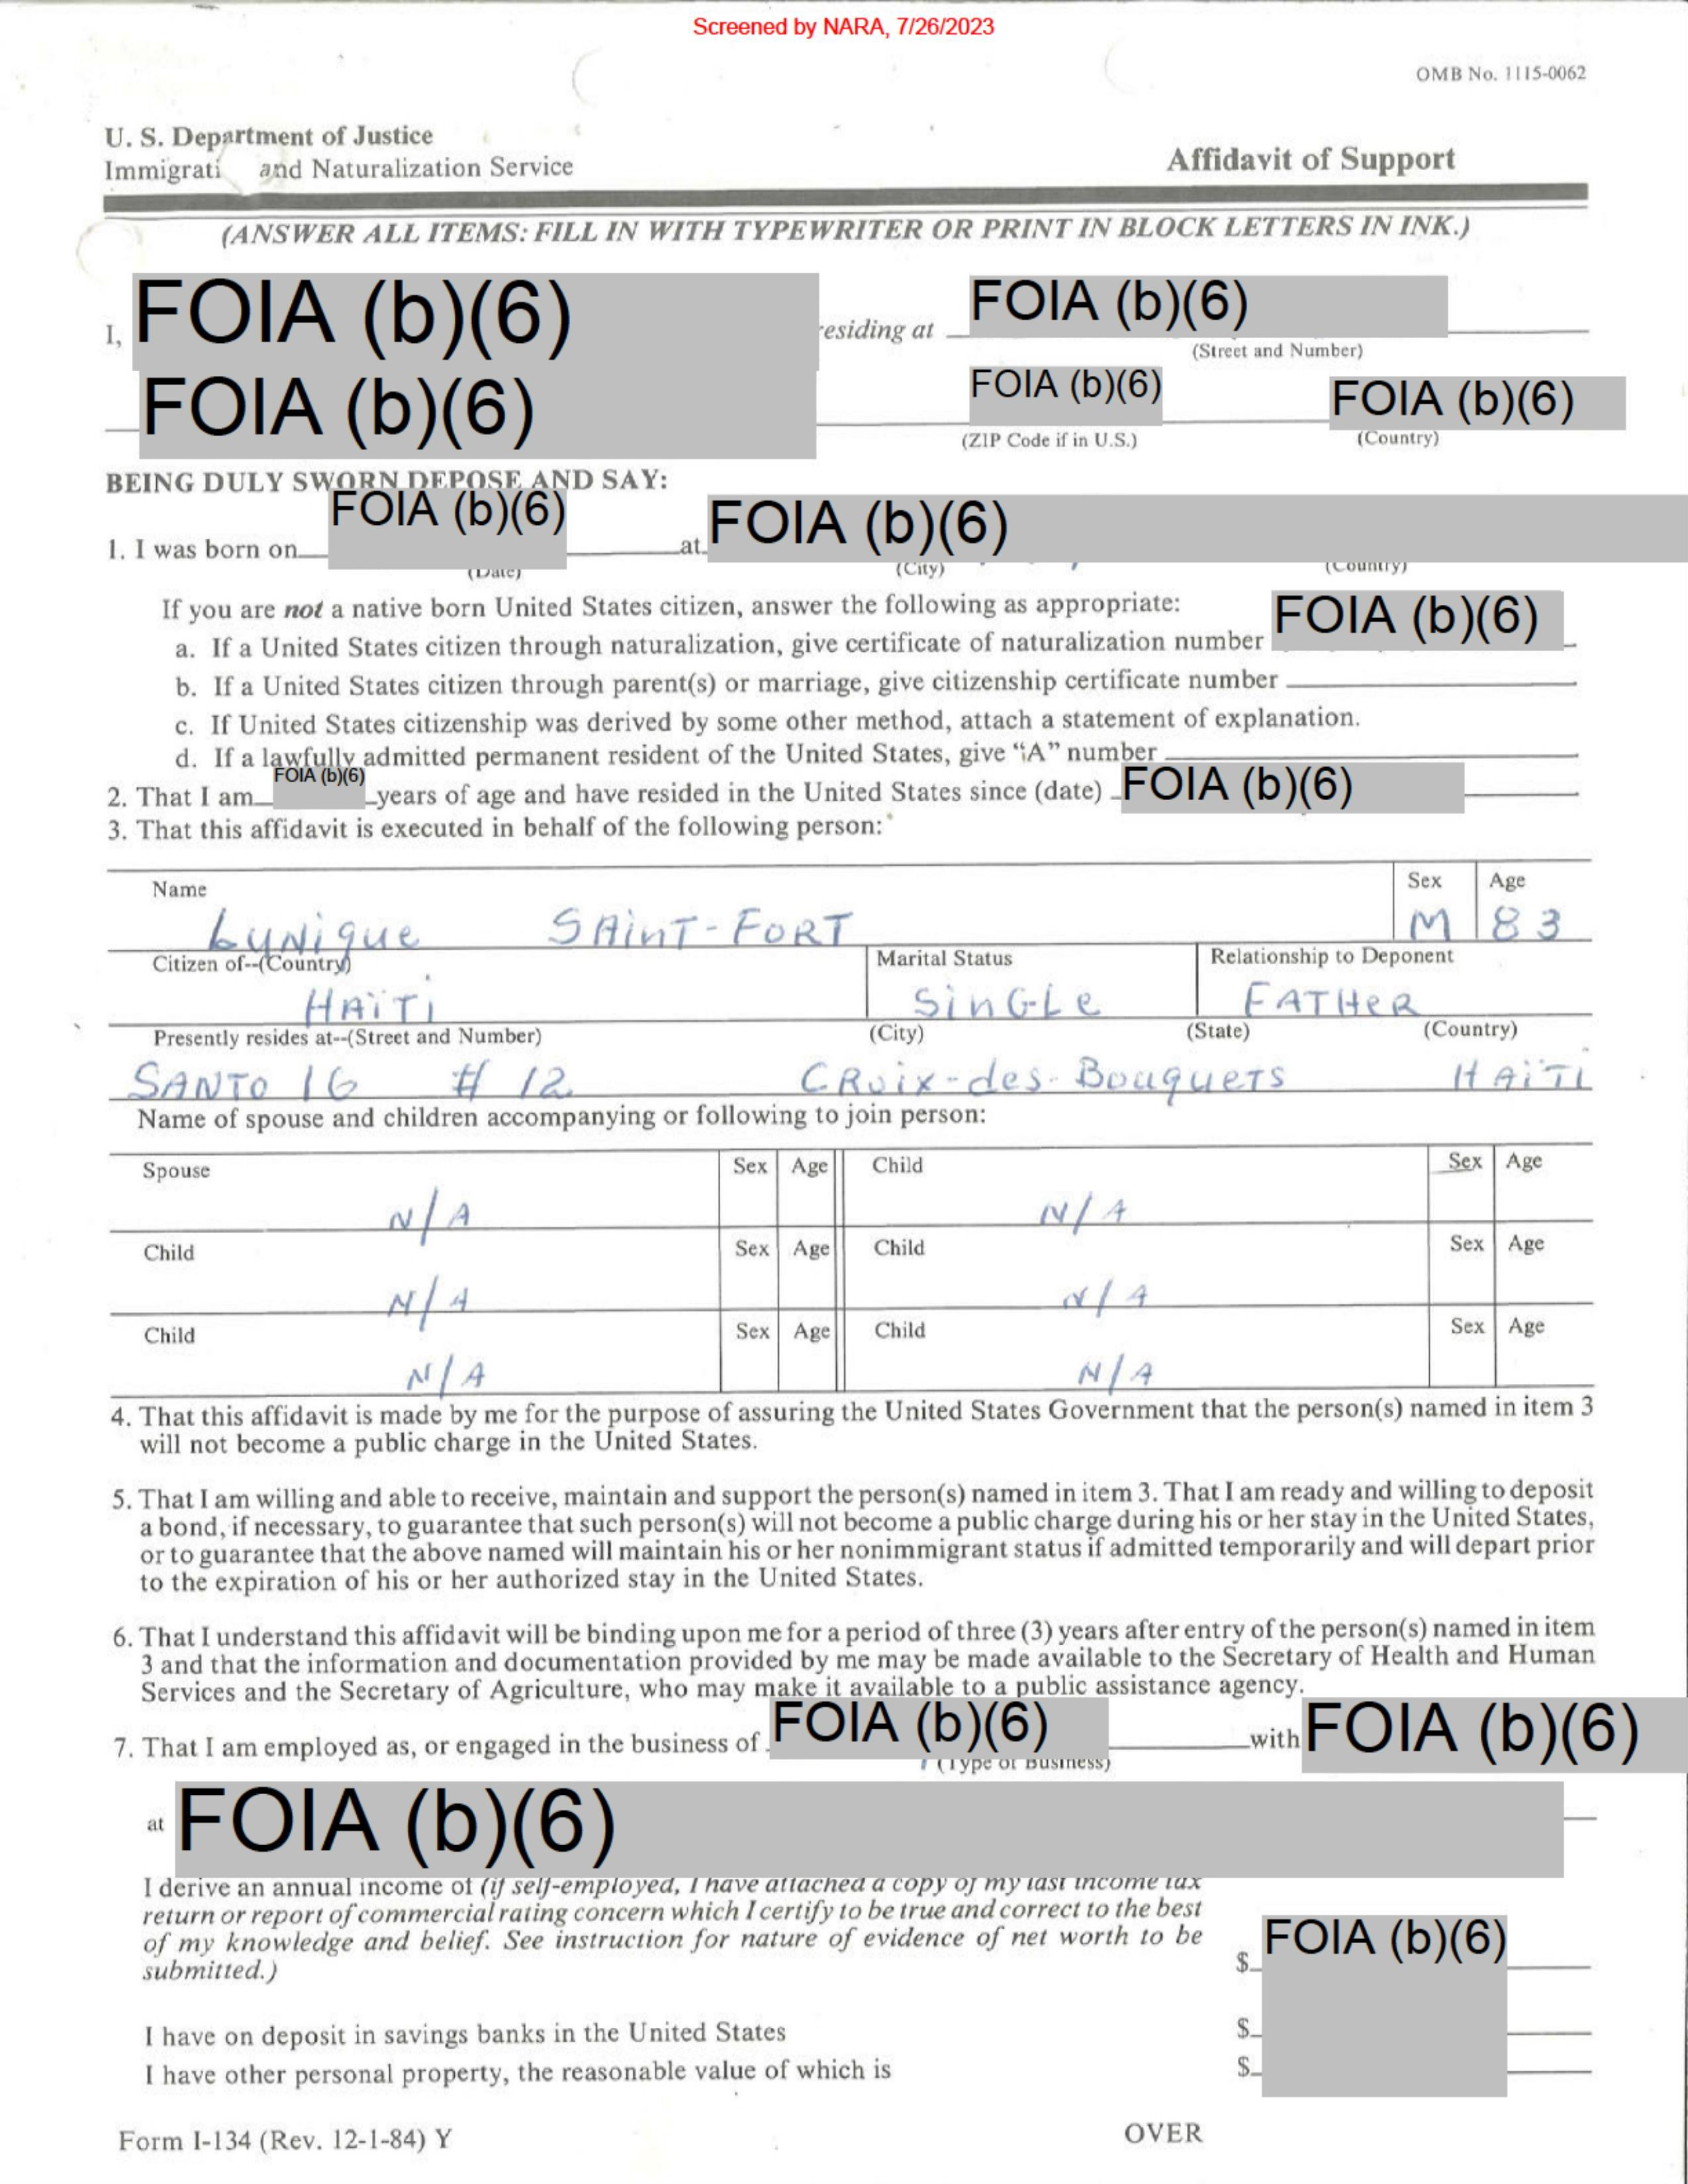 Screened by NARA, 7/26/2023
OMB No. 1115-0062
U. S. Department of Justice
Immigrati and Naturalization Service
Affidavit of Support
(ANSWER ALL ITEMS: FILL IN WITH TYPEWRITER OR PRINT IN BLOCK LETTERS IN INK.)
I, FOIA (b)(6) esiding at FOIA (b)(6)
(Street and Number)
FOIA (b)(6) FOIA (b)(6) FOIA (b)(6)
(ZIP Code if in U.S.) (Country)
BEING DULY SWORN DEPOSE AND SAY:
1. I was born on FOIA (b)(6) at FOIA (b)(6)
(Date) (City) (Country)
If you are not a native born United States citizen, answer the following as appropriate:
a. If a United States citizen through naturalization, give certificate of naturalization number FOIA (b)(6)
b. If a United States citizen through parent(s) or marriage, give citizenship certificate number
c. If United States citizenship was derived by some other method, attach a statement of explanation.
d. If a lawfully admitted permanent resident of the United States, give “A” number
2. That I am FOIA (b)(6) years of age and have resided in the United States since (date) FOIA (b)(6)
3. That this affidavit is executed in behalf of the following person:
Name Sex Age
Lynique SAinT-FORT M 83
Citizen of--(Country) Marital Status Relationship to Deponent
HAïTi SinGLe FATHeR
Presently resides at--(Street and Number) (City) (State) (Country)
SANTO 16 # 12 CRoix-des-BouqueTs HAïTi
Name of spouse and children accompanying or following to join person:
Spouse Sex Age Child Sex Age
N/A N/A
Child Sex Age Child Sex Age
N/A N/A
Child Sex Age Child Sex Age
N/A N/A
4. That this affidavit is made by me for the purpose of assuring the United States Government that the person(s) named in item 3
will not become a public charge in the United States.
5. That I am willing and able to receive, maintain and support the person(s) named in item 3. That I am ready and willing to deposit
a bond, if necessary, to guarantee that such person(s) will not become a public charge during his or her stay in the United States,
or to guarantee that the above named will maintain his or her nonimmigrant status if admitted temporarily and will depart prior
to the expiration of his or her authorized stay in the United States.
6. That I understand this affidavit will be binding upon me for a period of three (3) years after entry of the person(s) named in item
3 and that the information and documentation provided by me may be made available to the Secretary of Health and Human
Services and the Secretary of Agriculture, who may make it available to a public assistance agency.
7. That I am employed as, or engaged in the business of FOIA (b)(6) with FOIA (b)(6)
(Type of Business)
at FOIA (b)(6)
I derive an annual income of (if self-employed, I have attached a copy of my last income tax
return or report of commercial rating concern which I certify to be true and correct to the best
of my knowledge and belief. See instruction for nature of evidence of net worth to be
submitted.) $ FOIA (b)(6)
I have on deposit in savings banks in the United States $
I have other personal property, the reasonable value of which is $
Form I-134 (Rev. 12-1-84) Y OVER